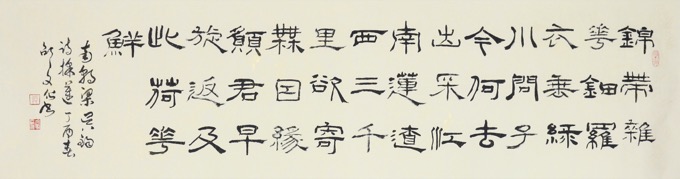 錦帶雜
華鈿羅
衣垂綠
川問子
今何去
出采江
南蓮遼
西三千
里欲寄
無因緣
願君早
旋返及
此荷華
鮮
南朝梁吳鈞
詩採蓮丁酉春
文化書